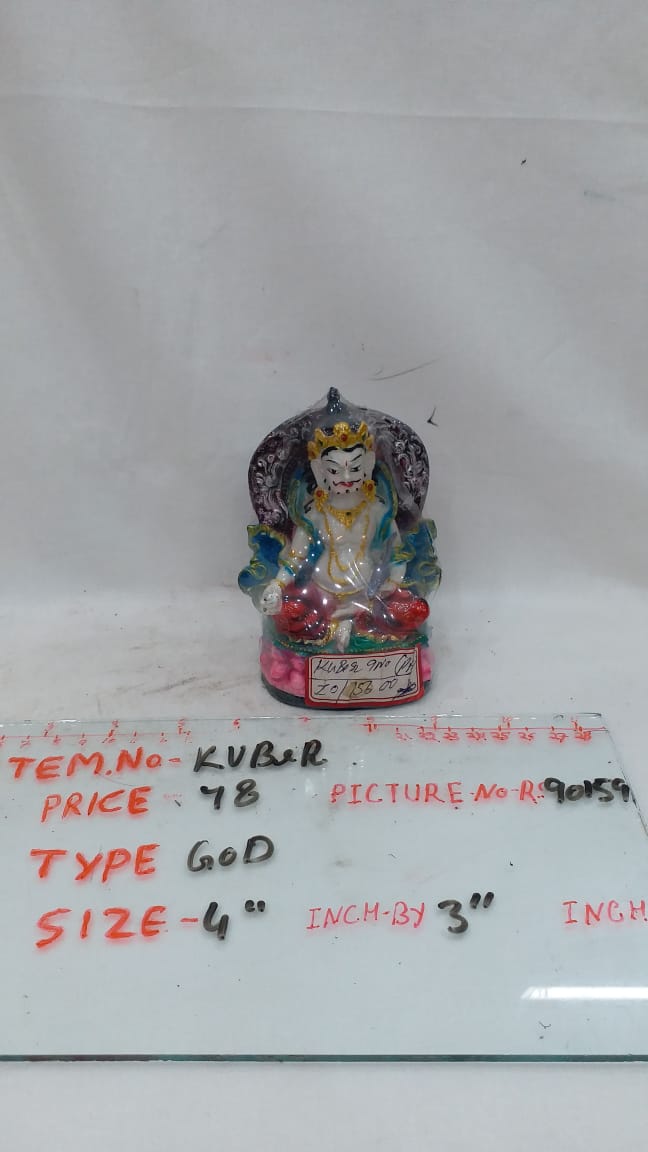 KUBeR 9no
IO 156.00
TEM.No- KUBeR
PRICE - 78 PICTURE-No-R. 90159
TYPE GoD
SIZE - 4" INCH-BY 3" INCH